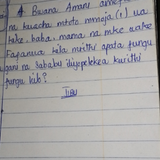 4 Bwana Amani
na kuacha mtoto mmoja (1) wa
kake, baba, mama na mke wake
Fafanua kila mrithi apata fungu
gani na sababu iliyopelekea kurithi
fungu hilo?
JIBU